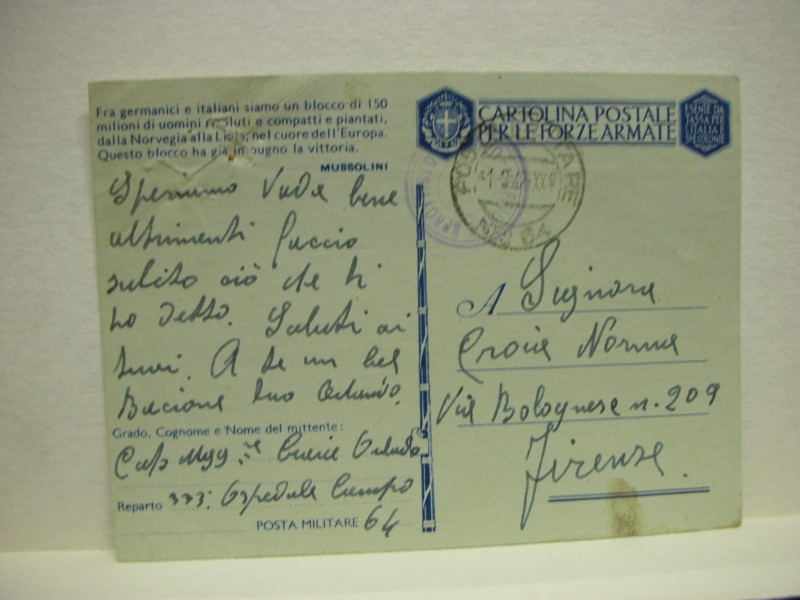 Fra germanici e italiani siamo un blocco di 150
milioni di uomini risoluti e compatti e piantati,
dalla Norvegia alla Libia, nel cuore dell'Europa.
Questo blocco ha già in pugno la vittoria.
MUSSOLINI
Speriamo Vada bene
altrimenti faccio
subito ciò che ti
ho detto. Saluti ai
tuoi. A te un bel
Bacione tuo Orlando.
Grado, Cognome e Nome del mittente:
Cap. Magg. Orlando
Reparto 333. Ospedale Campo
POSTA MILITARE 64
CARTOLINA POSTALE
PER LE FORZE ARMATE
ESENTE DA
TASSA PER
ITALIA E
COLONIE
A Signora
Norma
Via Bolognese n. 209
Firenze.